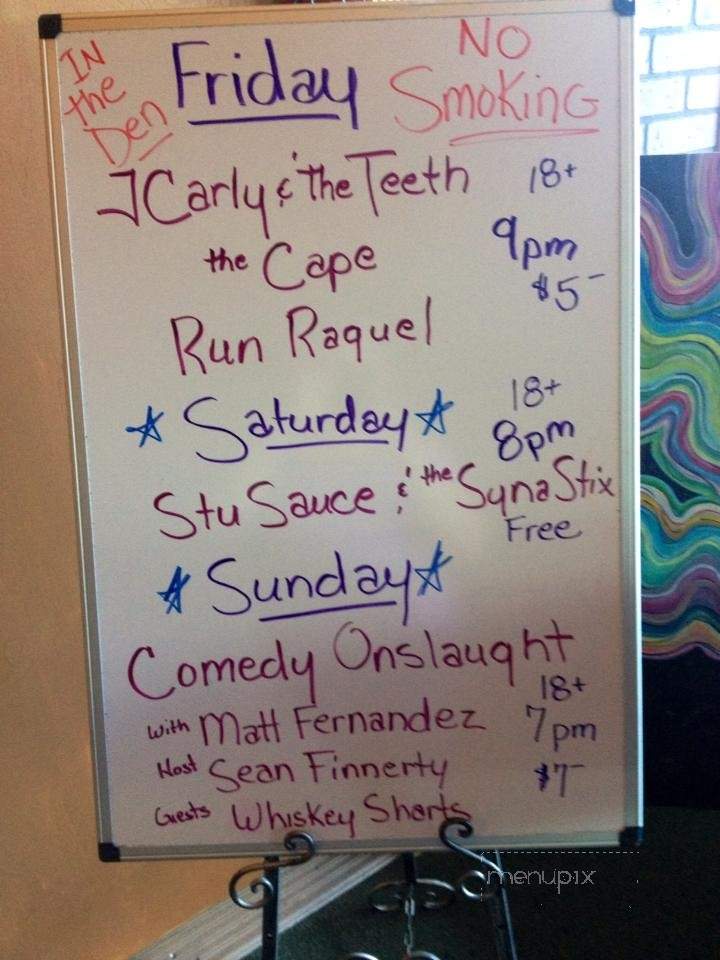 IN the Den
Friday
NO SMOKING
JCarly & the Teeth 18+
the Cape 9pm
$5-
Run Raquel
Saturday 18+
8pm
Stu Sauce & the SynaStix
Free
Sunday
Comedy Onslaught
18+
with Matt Fernandez 7pm
Host Sean Finnerty $7-
Guests Whiskey Shorts
menupix